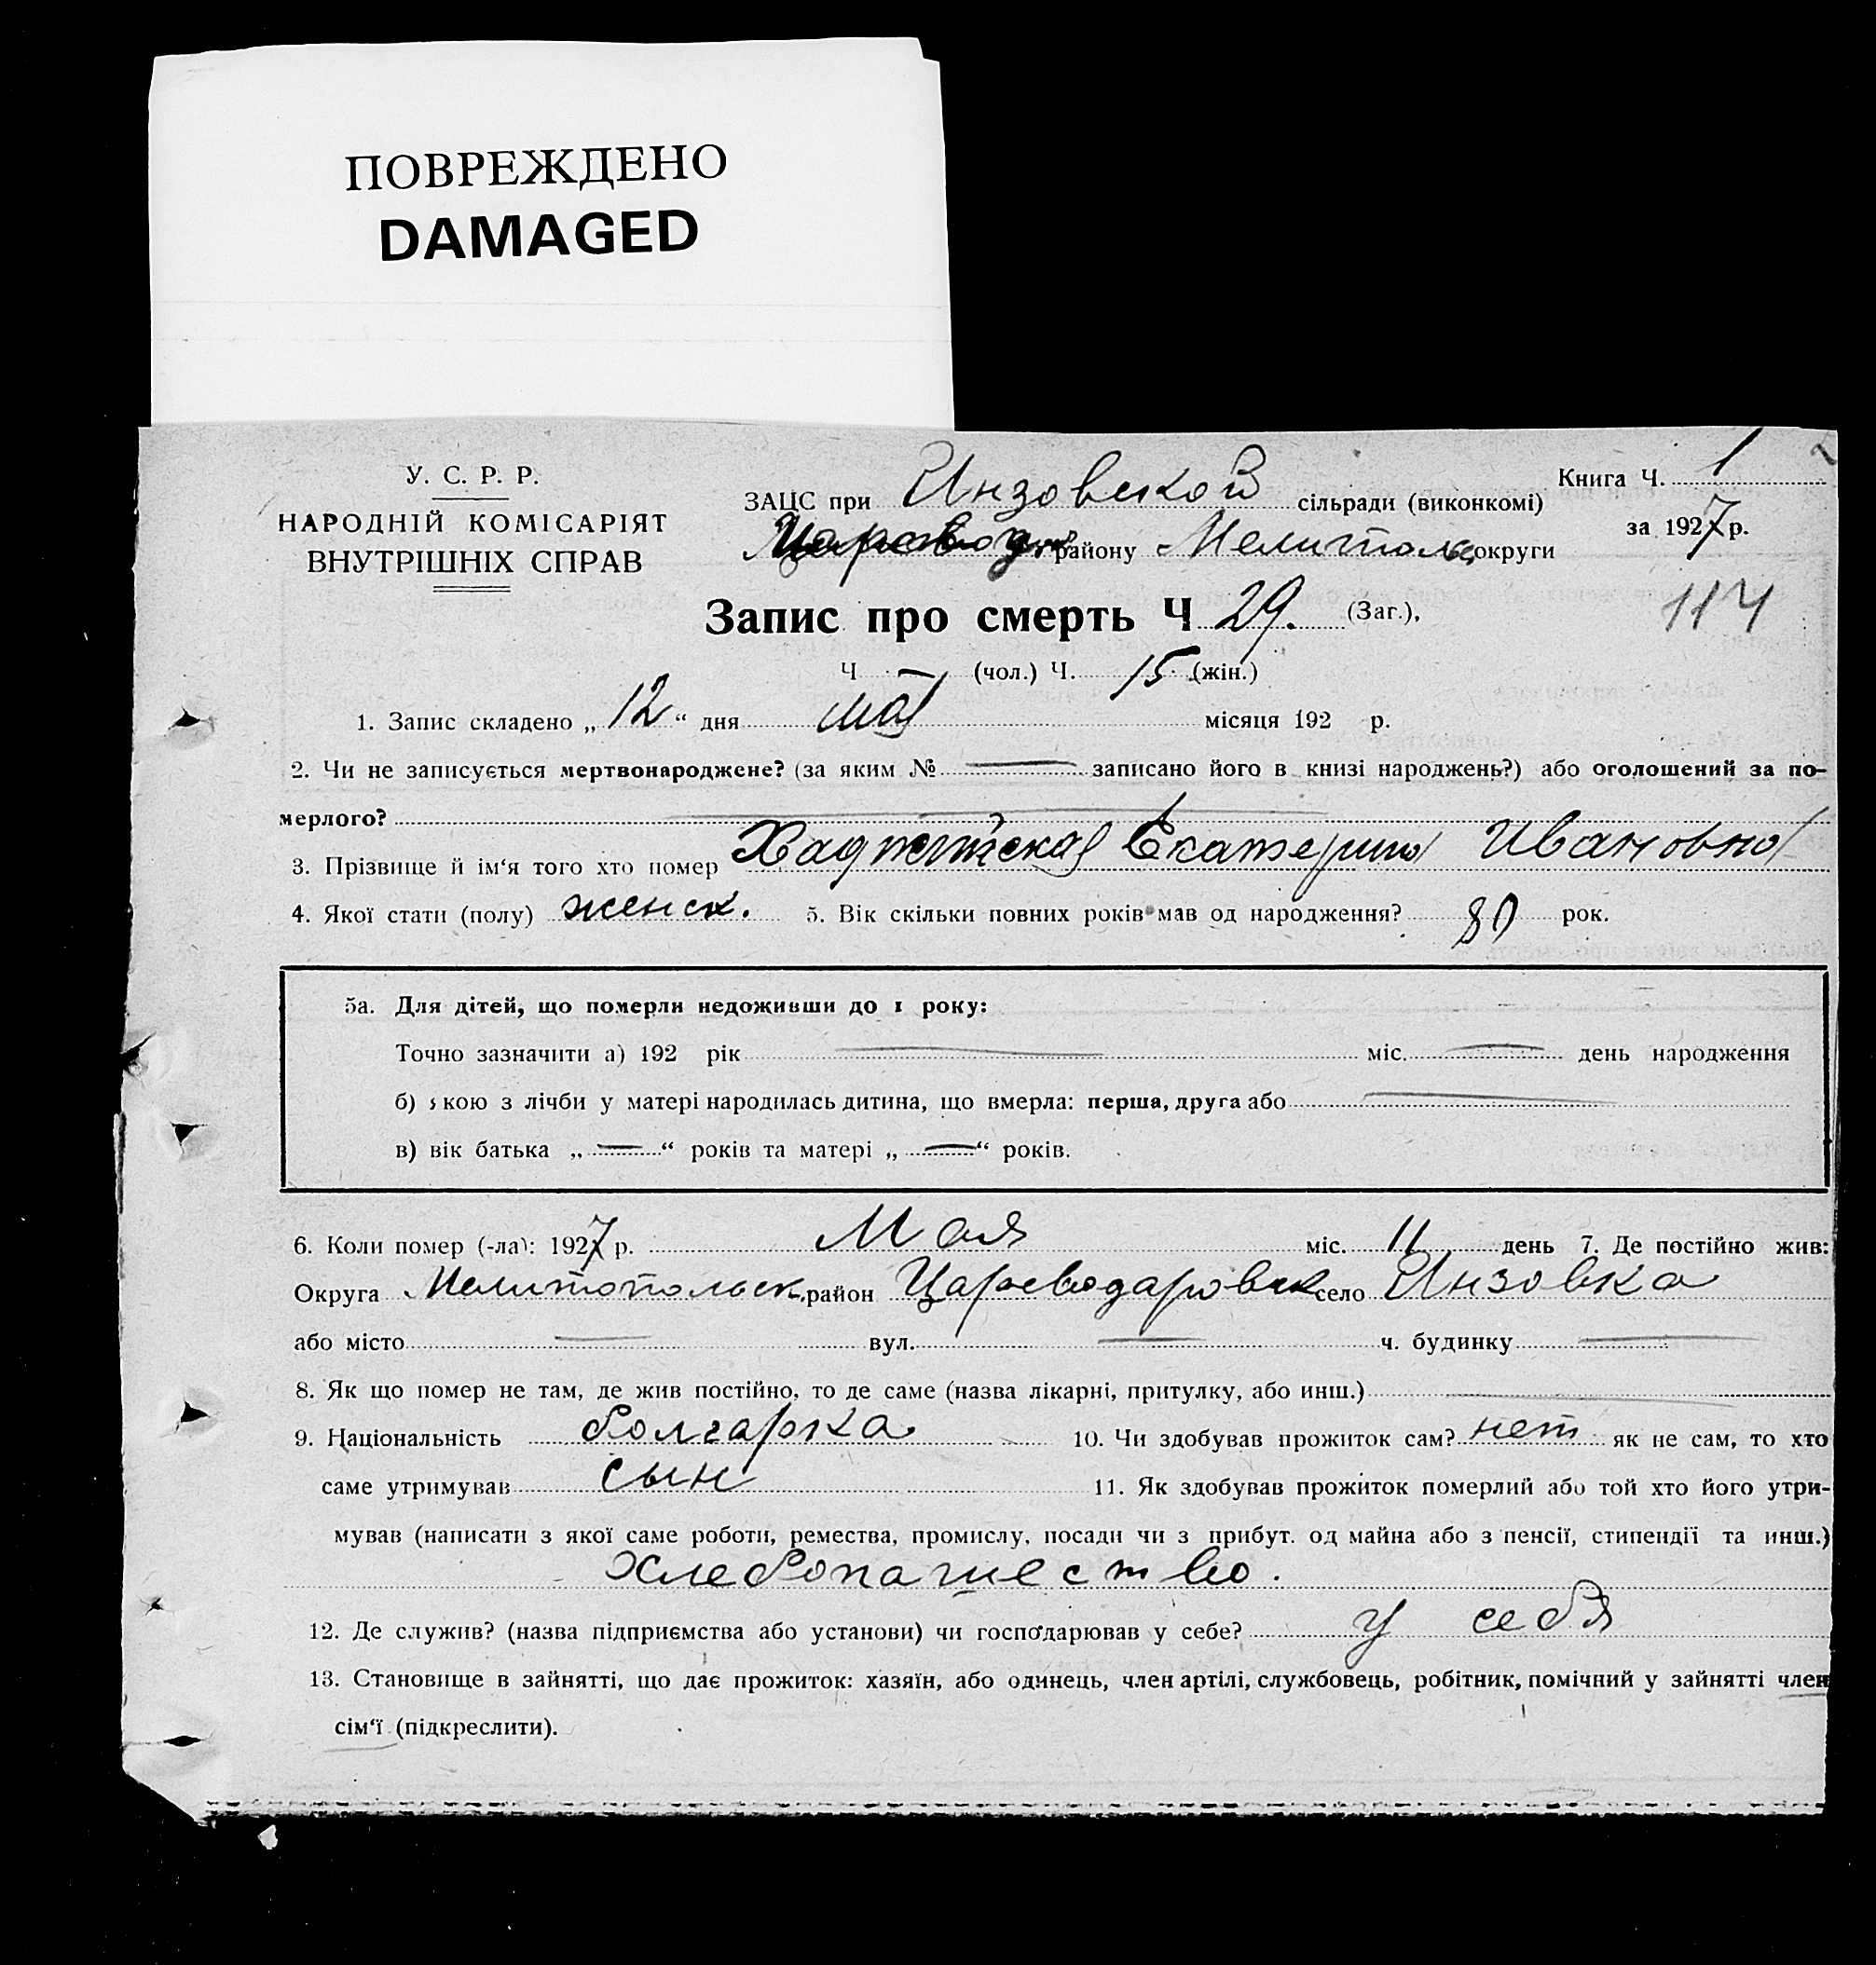 ПОВРЕЖДЕНО
DAMAGED
У. С. Р. Р.
НАРОДНІЙ КОМІСАРІЯТ
ВНУТРІШНІХ СПРАВ
ЗАЦС при Инзовской сільради (виконкомі)
району Мелитопольс округи
Книга Ч. 1
за 1927 р.
114
Запис про смерть Ч 29. (Заг.),
Ч — (чол.) Ч. 15 (жін.)
1. Запис складено „ 12 “ дня мая місяця 192 р.
2. Чи не записується мертвонароджене? (за яким № — записано його в книзі народжень?) або оголошений за по-
мерлого? —
3. Прізвище й ім‘я того хто помер Екатерина Ивановна
4. Якої стати (полу) женск. 5. Вік скільки повних років мав од народження? 80 рок.
5а. Для дітей, що померли недоживши до 1 року:
Точно зазначити а) 192 рік — міс. — день народження
б) якою з лічби у матері народилась дитина, що вмерла: перша, друга або —
в) вік батька „ — “ років та матері „ — “ років.
6. Коли помер (-ла): 1927 р. Мая міс. 11 день 7. Де постійно жив:
Округа Мелитопольск. район Цареводаровск село Инзовка
або місто — вул. — ч. будинку —
8. Як що помер не там, де жив постійно, то де саме (назва лікарні, притулку, або инш.) —
9. Національність болгарка 10. Чи здобував прожиток сам? нет як не сам, то хто
саме утримував сын 11. Як здобував прожиток померлий або той хто його утри-
мував (написати з якої саме роботи, ремества, промислу, посади чи з прибут. од майна або з пенсії, стипендії та инш.)
Хлебопашество.
12. Де служив? (назва підприємства або установи) чи господарював у себе? у себя
13. Становище в зайнятті, що дає прожиток: хазяїн, або одинець, член артілі, службовець, робітник, помічний у зайнятті член
сім‘ї (підкреслити).